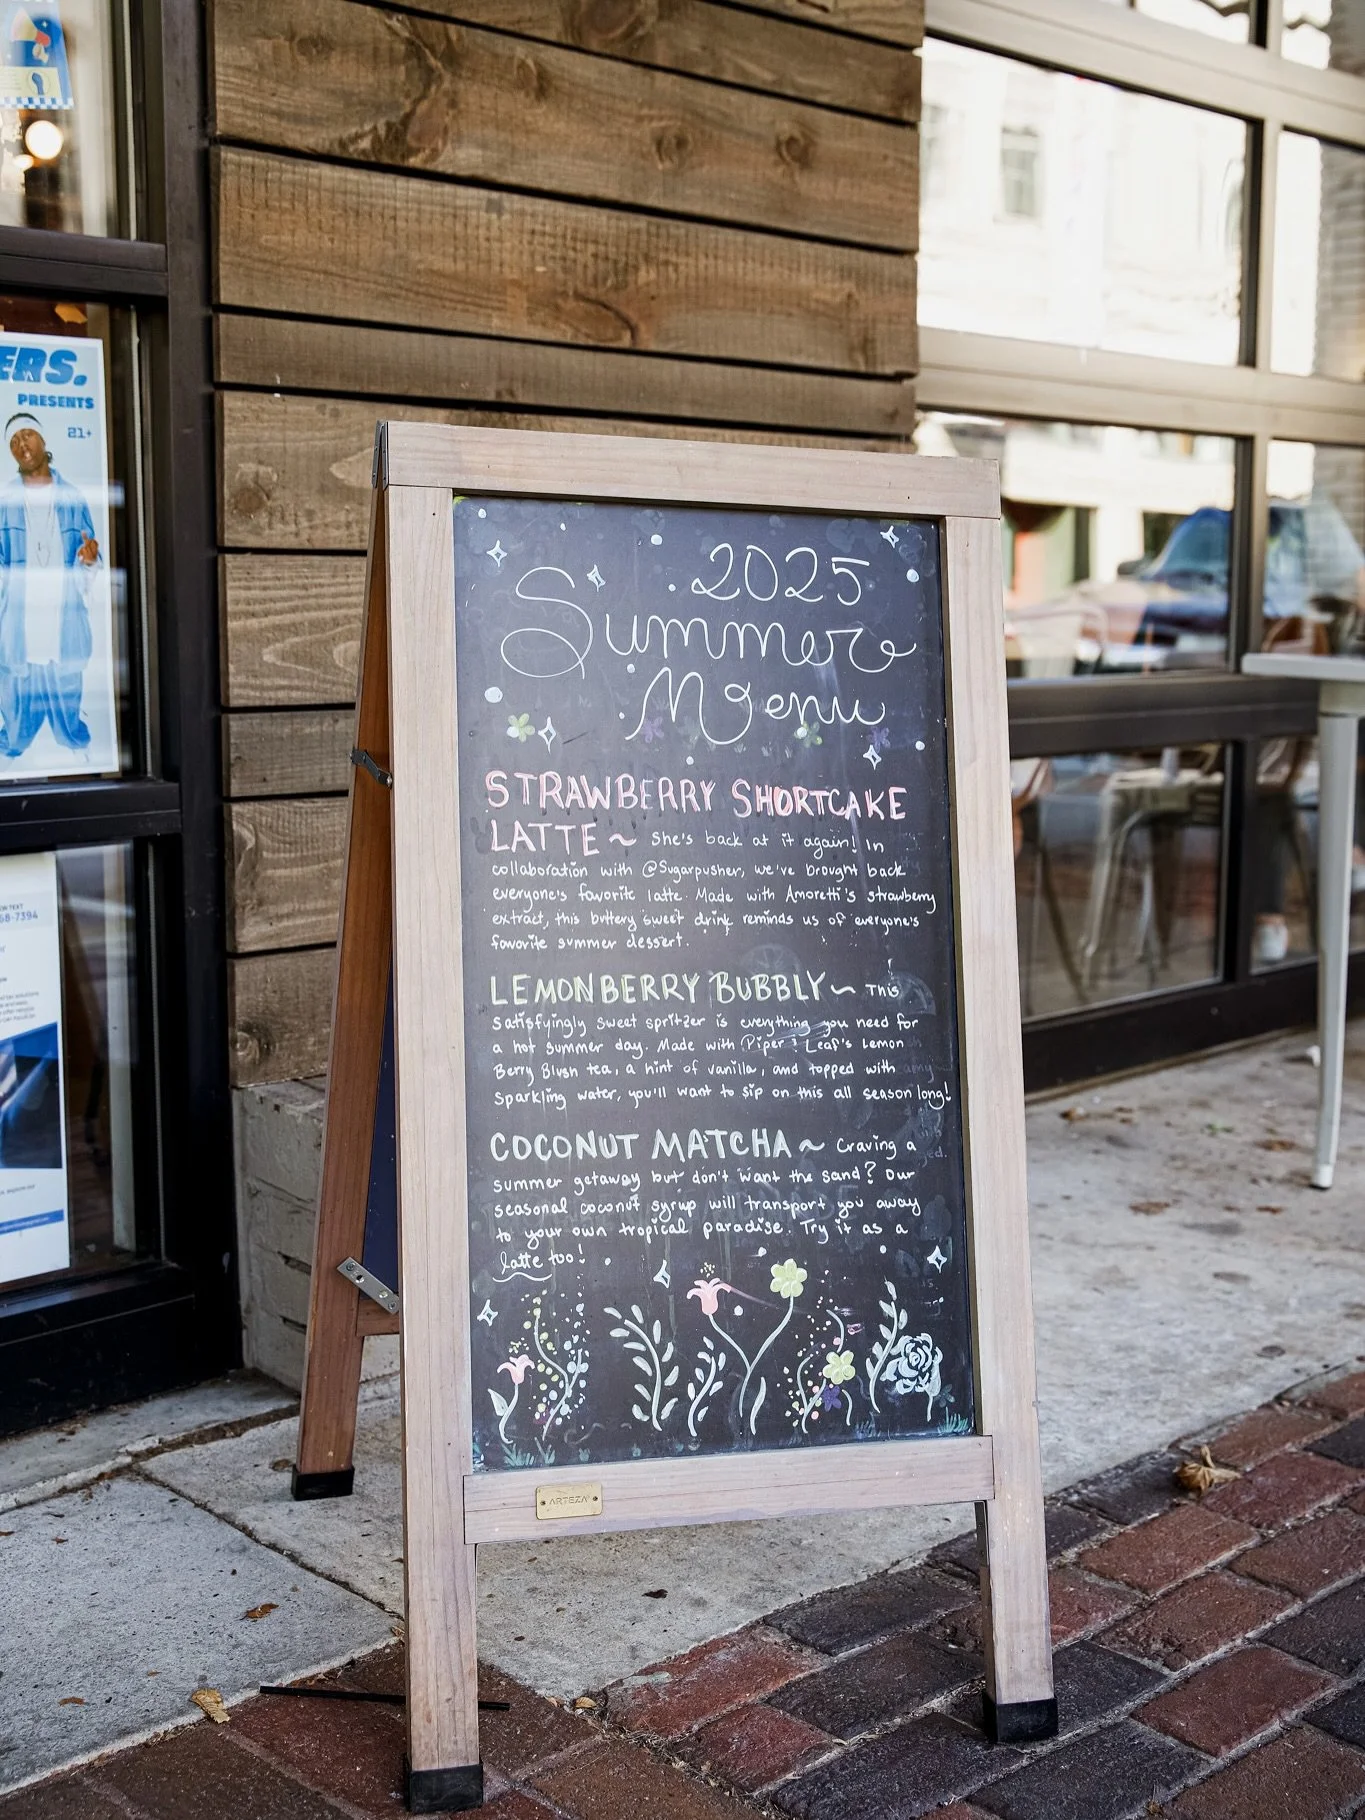 ERS.
PRESENTS
21+
2025
Summer
Menu
STRAWBERRY SHORTCAKE
LATTE ~ She's back at it again! In
collaboration with @Sugarpusher, we've brought back
everyone's favorite latte. Made with Amoretti's strawberry
extract, this buttery sweet drink reminds us of everyone's
favorite summer dessert.
LEMONBERRY BUBBLY ~ This
satisfyingly sweet spritzer is everything you need for
a hot summer day. Made with Piper & Leaf's Lemon
Berry Blush tea, a hint of vanilla, and topped with
sparkling water, you'll want to sip on this all season long!
COCONUT MATCHA ~ Craving a
summer getaway but don't want the sand? Our
seasonal coconut syrup will transport you away
to your own tropical paradise. Try it as a
latte too!
ARTEZA
TEXT
68-7394